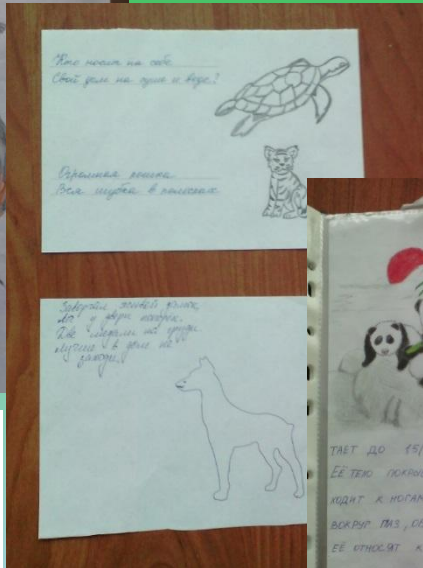 Кто носит на себе
Свой дом на суше и воде?
Огромная кошка
Вся шубка в полосках
Завертел живой
у двери поперек.
Две медали на груди
Лучше в дом не
заходи.
ТАЕТ ДО 15
ЕЁ ТЕЛО ПОКРЫ
ХОДИТ К НОГАМ
ВОКРУГ ГЛАЗ, О
ЕЁ ОТНОСЯТ К